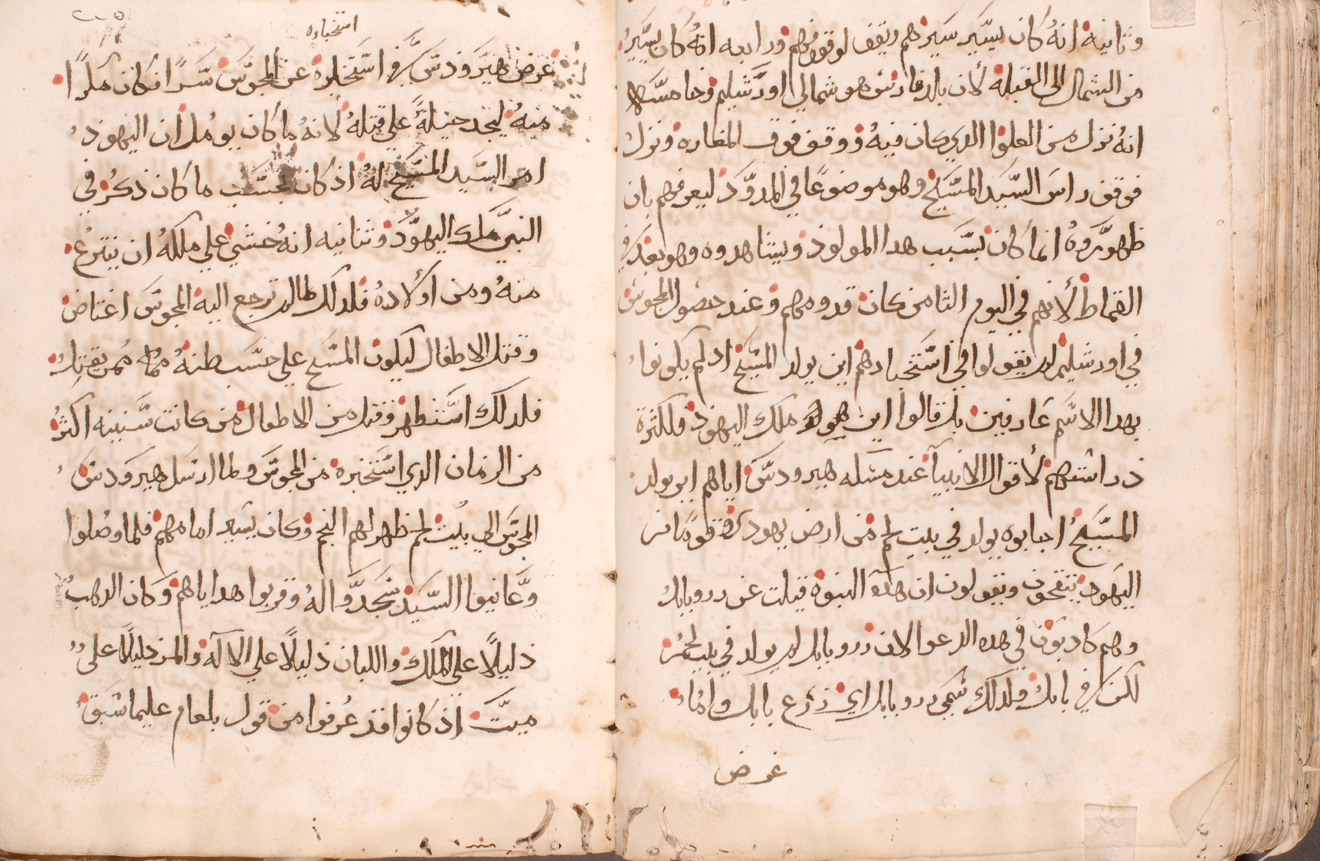 وثانيه انهُ كان يسير سيرهم ويقف لوقوفهم ورابعه انهُ كان يسير
من الشمال الى القبله لان بلد فارس هو شمالي اورشليم وخامسها
انه نزل من العلوا الدي كان فيهُ ووقف فوق المغاره ونزل
فوقف راس السَيد المسَيح وهو موضوعًا في المدود ليعرفهم بان
ظهورهُ انما كان بسَبب هدا المولود ويشاهدوه وهو بعد في
القماط لانهم في اليوم الثامن كان قدومهم وعند حصول المجوس
في اورشليم لم يقولوا في استخبارهم اين يولد المسيح اد لم يكونوا
بهدا الاسَم عارفين بل قالوا اين هو ملك اليهود فلكثرة
دراستهم لاقوال الانبيا عند مسَله هيرودس اياهم اين يولد
المسَيح اجابوه يولد في بيت لحم من ارض يهودا وقومًا من
اليهود يتقحون ويقولون ان هده النبوه قيلت عن زروبابل
وهم كادبون في هده الدعوا لان زروبابل لم يولد في بيت لحم
لكن في بابل ولدلك سَمي زروبابل اي زرع بابل وانما
غرض
استخباره
غرض هيرودس في استخباره عن المجوس سَرًا فكان مكرًا
منهُ ليجد حيلةً علي قتلهُ لانهُ ما كان يومل ان اليهود
امر السَيد المسَيح لهُ اد كان بحسَب ما كان دكر في
النبي ملك اليهود وثانيه انهُ خشي علي ملكهُ ان ينتزع
منهُ ومن اولادهُ فلدلك لما لم ترجع اليه المجوس اغتاض
وقتل الاطفال ليكون المسَيح علي حسَب ظنهُ ممن يقتل
فلدلك اسَتظهر وقتل من الاطفال من كانت سَنينه اكثر
من الزمان الدي استخبره من المجوس ولما ارسَل هيرودس
المجوس الي بيت لحم ظهر لهم النجم وكان يسَير امامهم فلما وصلوا
وعاينوا السَيد سَجدوا لهُ وقربوا هداياهم وكان الدهب
دليلًا علي الملك واللبان دليلًا علي الاله والمر دليلًا علي
ميت اد كانوا قد عرفوا من قول بلعام عليما سَبق